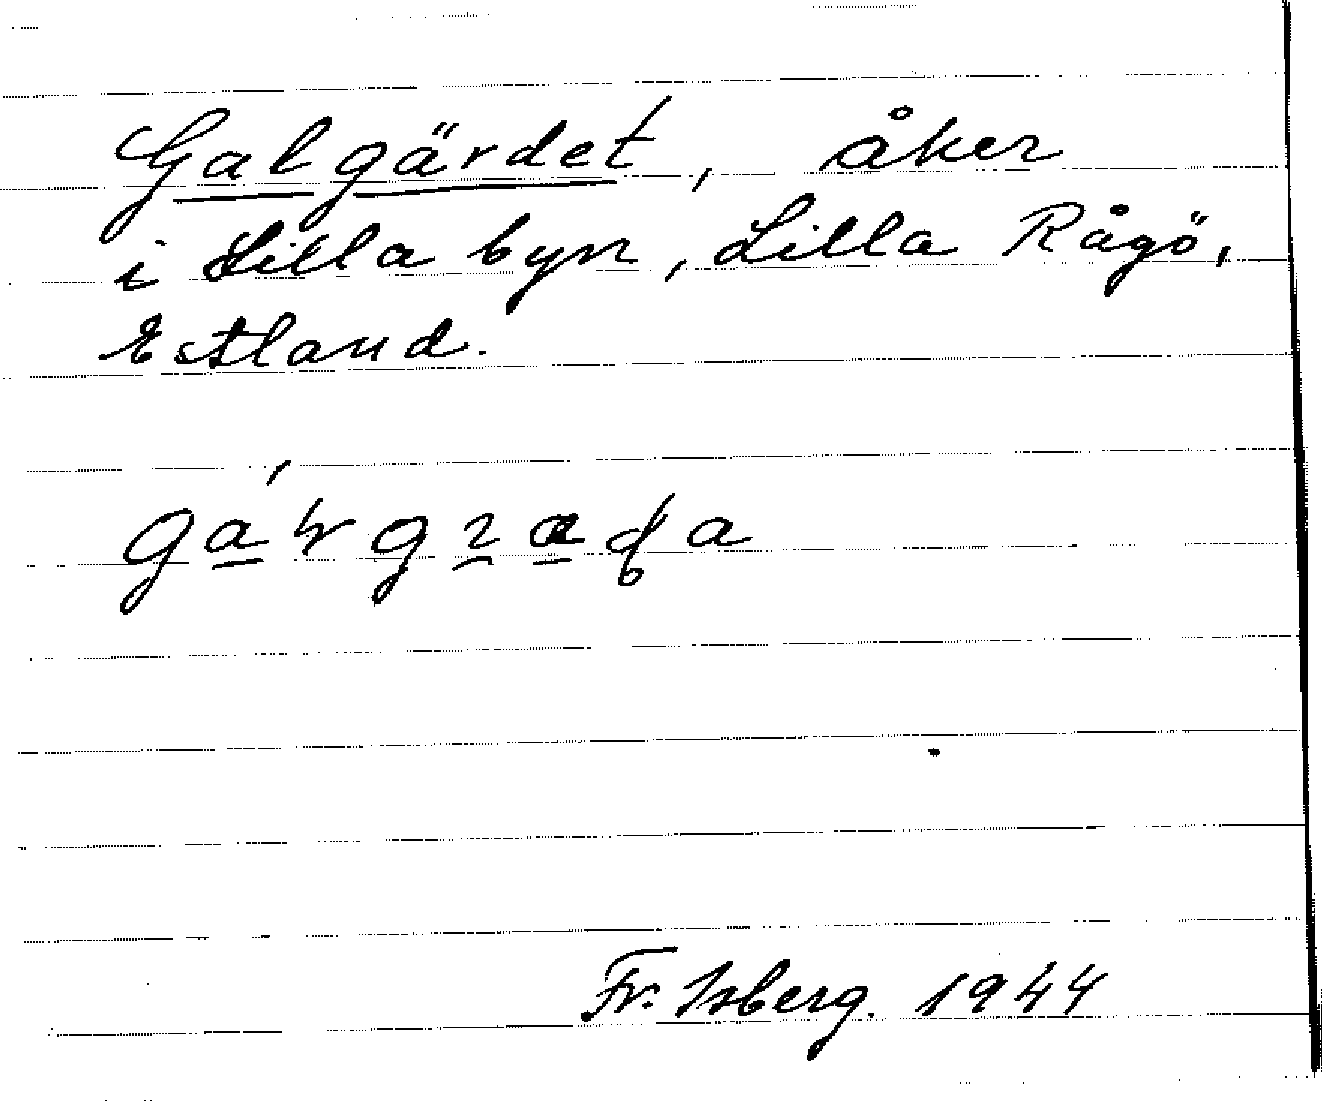 Galgärdet, åker
i Lilla byn, Lilla Rågö,
Estland.
Fr. Isberg. 1944